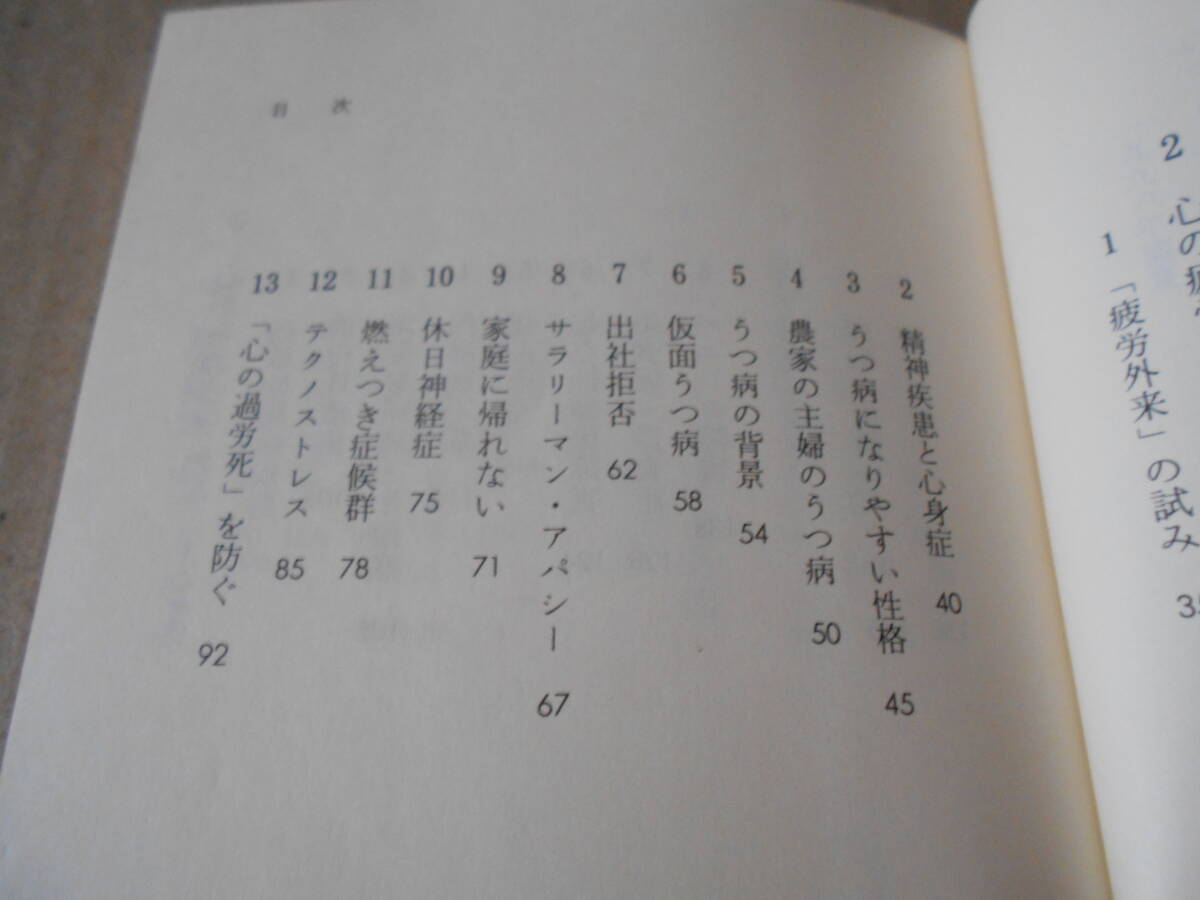 2 心の疲
1 「疲労外来」の試み 3
目次
2 精神疾患と心身症 40
3 うつ病になりやすい性格 45
4 農家の主婦のうつ病 50
5 うつ病の背景 54
6 仮面うつ病 58
7 出社拒否 62
8 サラリーマン・アパシー 67
9 家庭に帰れない 71
10 休日神経症 75
11 燃えつき症候群 78
12 テクノストレス 85
13 「心の過労死」を防ぐ 92